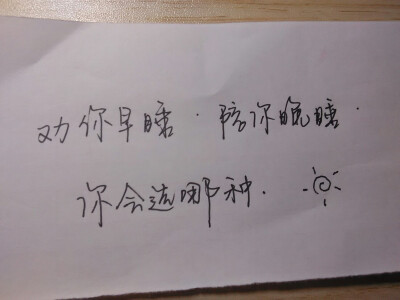 劝你早睡.陪你晚睡.
你会选哪种.